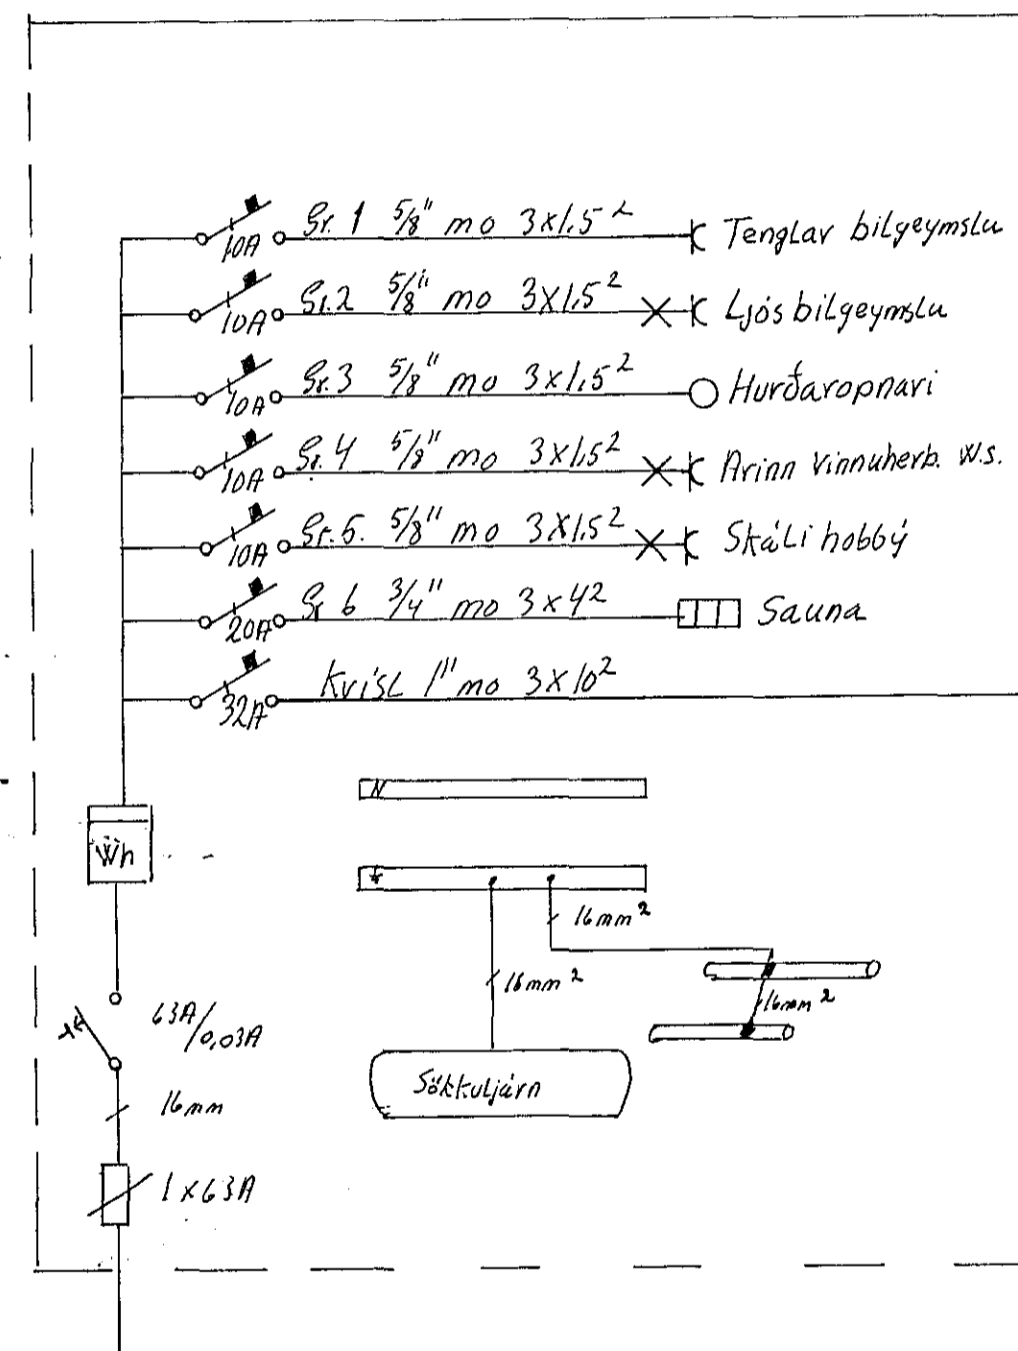 10A Gr. 1 5/8" mo 3x1,5² Tenglar bílgeymslu
10A Gr. 2 5/8" mo 3x1,5² Ljós bílgeymslu
10A Gr. 3 5/8" mo 3x1,5² Hurðaropnari
10A Gr. 4 5/8" mo 3x1,5² Arinn vinnuherb. W.s.
10A Gr. 5. 5/8" mo 3x1,5² Skáli hobbý
20A Gr 6 3/4" mo 3x4² Sauna
32A Kvísl 1" mo 3x10²
N
Wh
16mm²
16mm²
16mm²
63A/0,03A
Sökkuljárn
16mm
1x63A